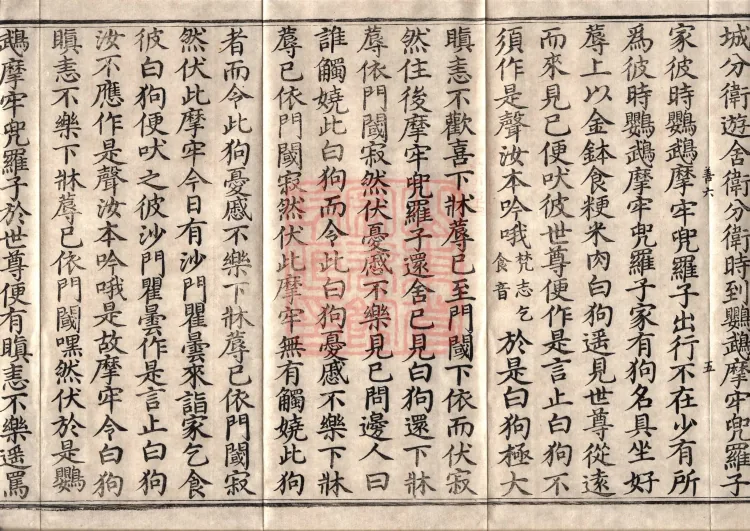 城分衛遊舍衛分衛時到鸚鵡摩牢兜羅子
家彼時鸚鵡摩牢兜羅子出行不在少有所
善六
五
為彼時鸚鵡摩牢兜羅子家有狗名具坐好
蓐上以金鉢食粳米肉白狗遥見世尊從遠
而來見已便吠彼世尊便作是言止白狗不
須作是聲汝本吟哦梵志乞食音於是白狗極大
瞋恚不歡喜下牀蓐已至門閾下依而伏寂
然住後摩牢兜羅子還舍已見白狗還下牀
蓐依門閾寂然伏憂慼不樂見已問邊人曰
誰觸嬈此白狗而令此白狗憂慼不樂下牀
蓐已依門閾寂然伏此摩牢無有觸嬈此狗
者而令此狗憂慼不樂下牀蓐已依門閾寂
然伏此摩牢今日有沙門瞿曇來詣家乞食
彼白狗便吠之彼沙門瞿曇作是言止白狗
汝不應作是聲汝本吟哦是故摩牢令白狗
瞋恚不樂下牀蓐已依門閾嘿然伏於是鸚
鵡摩牢兜羅子於世尊便有瞋恚不樂遥罵